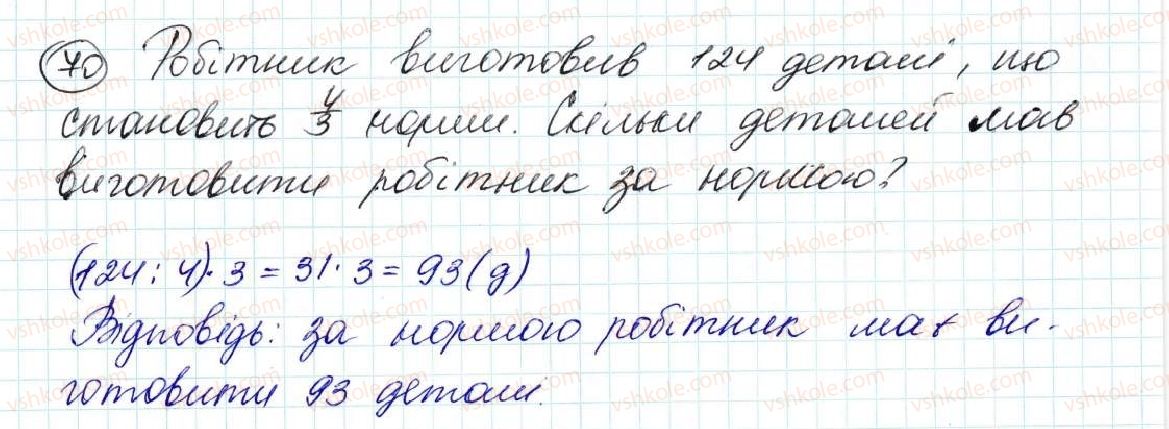 70 Робітник виготовив 124 деталі, що
становить 4/3 норми. Скільки деталей мав
виготовити робітник за нормою?
(124 : 4) · 3 = 31 · 3 = 93 (д)
Відповідь: за нормою робітник має ви-
готовити 93 деталі.